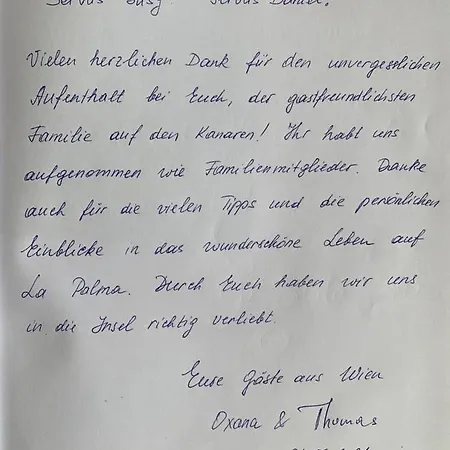 Servus Susy! Servus Daniel!
Vielen herzlichen Dank für den unvergesslichen
Aufenthalt bei Euch, der gastfreundlichsten
Familie auf den Kanaren! Ihr habt uns
aufgenommen wie Familienmitglieder. Danke
auch für die vielen Tipps und die persönlichen
Einblicke in das wunderschöne Leben auf
La Palma. Durch Euch haben wir uns
in die Insel richtig verliebt.
Eure Gäste aus Wien
Oxana & Thomas